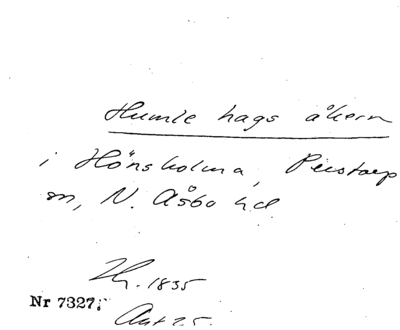 Humle hags åkern
i Hönsholma, Perstorp
sn, N. Åsbo hd
Zh. 1835
Nr 7327.
Akt 25.